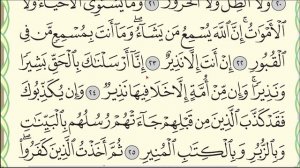 وَلَا ٱلظِّلُّ وَلَا ٱلْحَرُورُ ٢١ وَمَا يَسْتَوِى ٱلْأَحْيَآءُ وَلَا
ٱلْأَمْوَٰتُ إِنَّ ٱللَّهَ يُسْمِعُ مَن يَشَآءُ وَمَآ أَنتَ بِمُسْمِعٍ مَّن فِى
ٱلْقُبُورِ ٢٢ إِنْ أَنتَ إِلَّا نَذِيرٌ ٢٣ إِنَّآ أَرْسَلْنَٰكَ بِٱلْحَقِّ بَشِيرًا
وَنَذِيرًا وَإِن مِّنْ أُمَّةٍ إِلَّا خَلَا فِيهَا نَذِيرٌ ٢٤ وَإِن يُكَذِّبُوكَ
فَقَدْ كَذَّبَ ٱلَّذِينَ مِن قَبْلِهِمْ جَآءَتْهُمْ رُسُلُهُم بِٱلْبَيِّنَٰتِ
وَبِٱلزُّبُرِ وَبِٱلْكِتَٰبِ ٱلْمُنِيرِ ٢٥ ثُمَّ أَخَذْتُ ٱلَّذِينَ كَفَرُوا۟